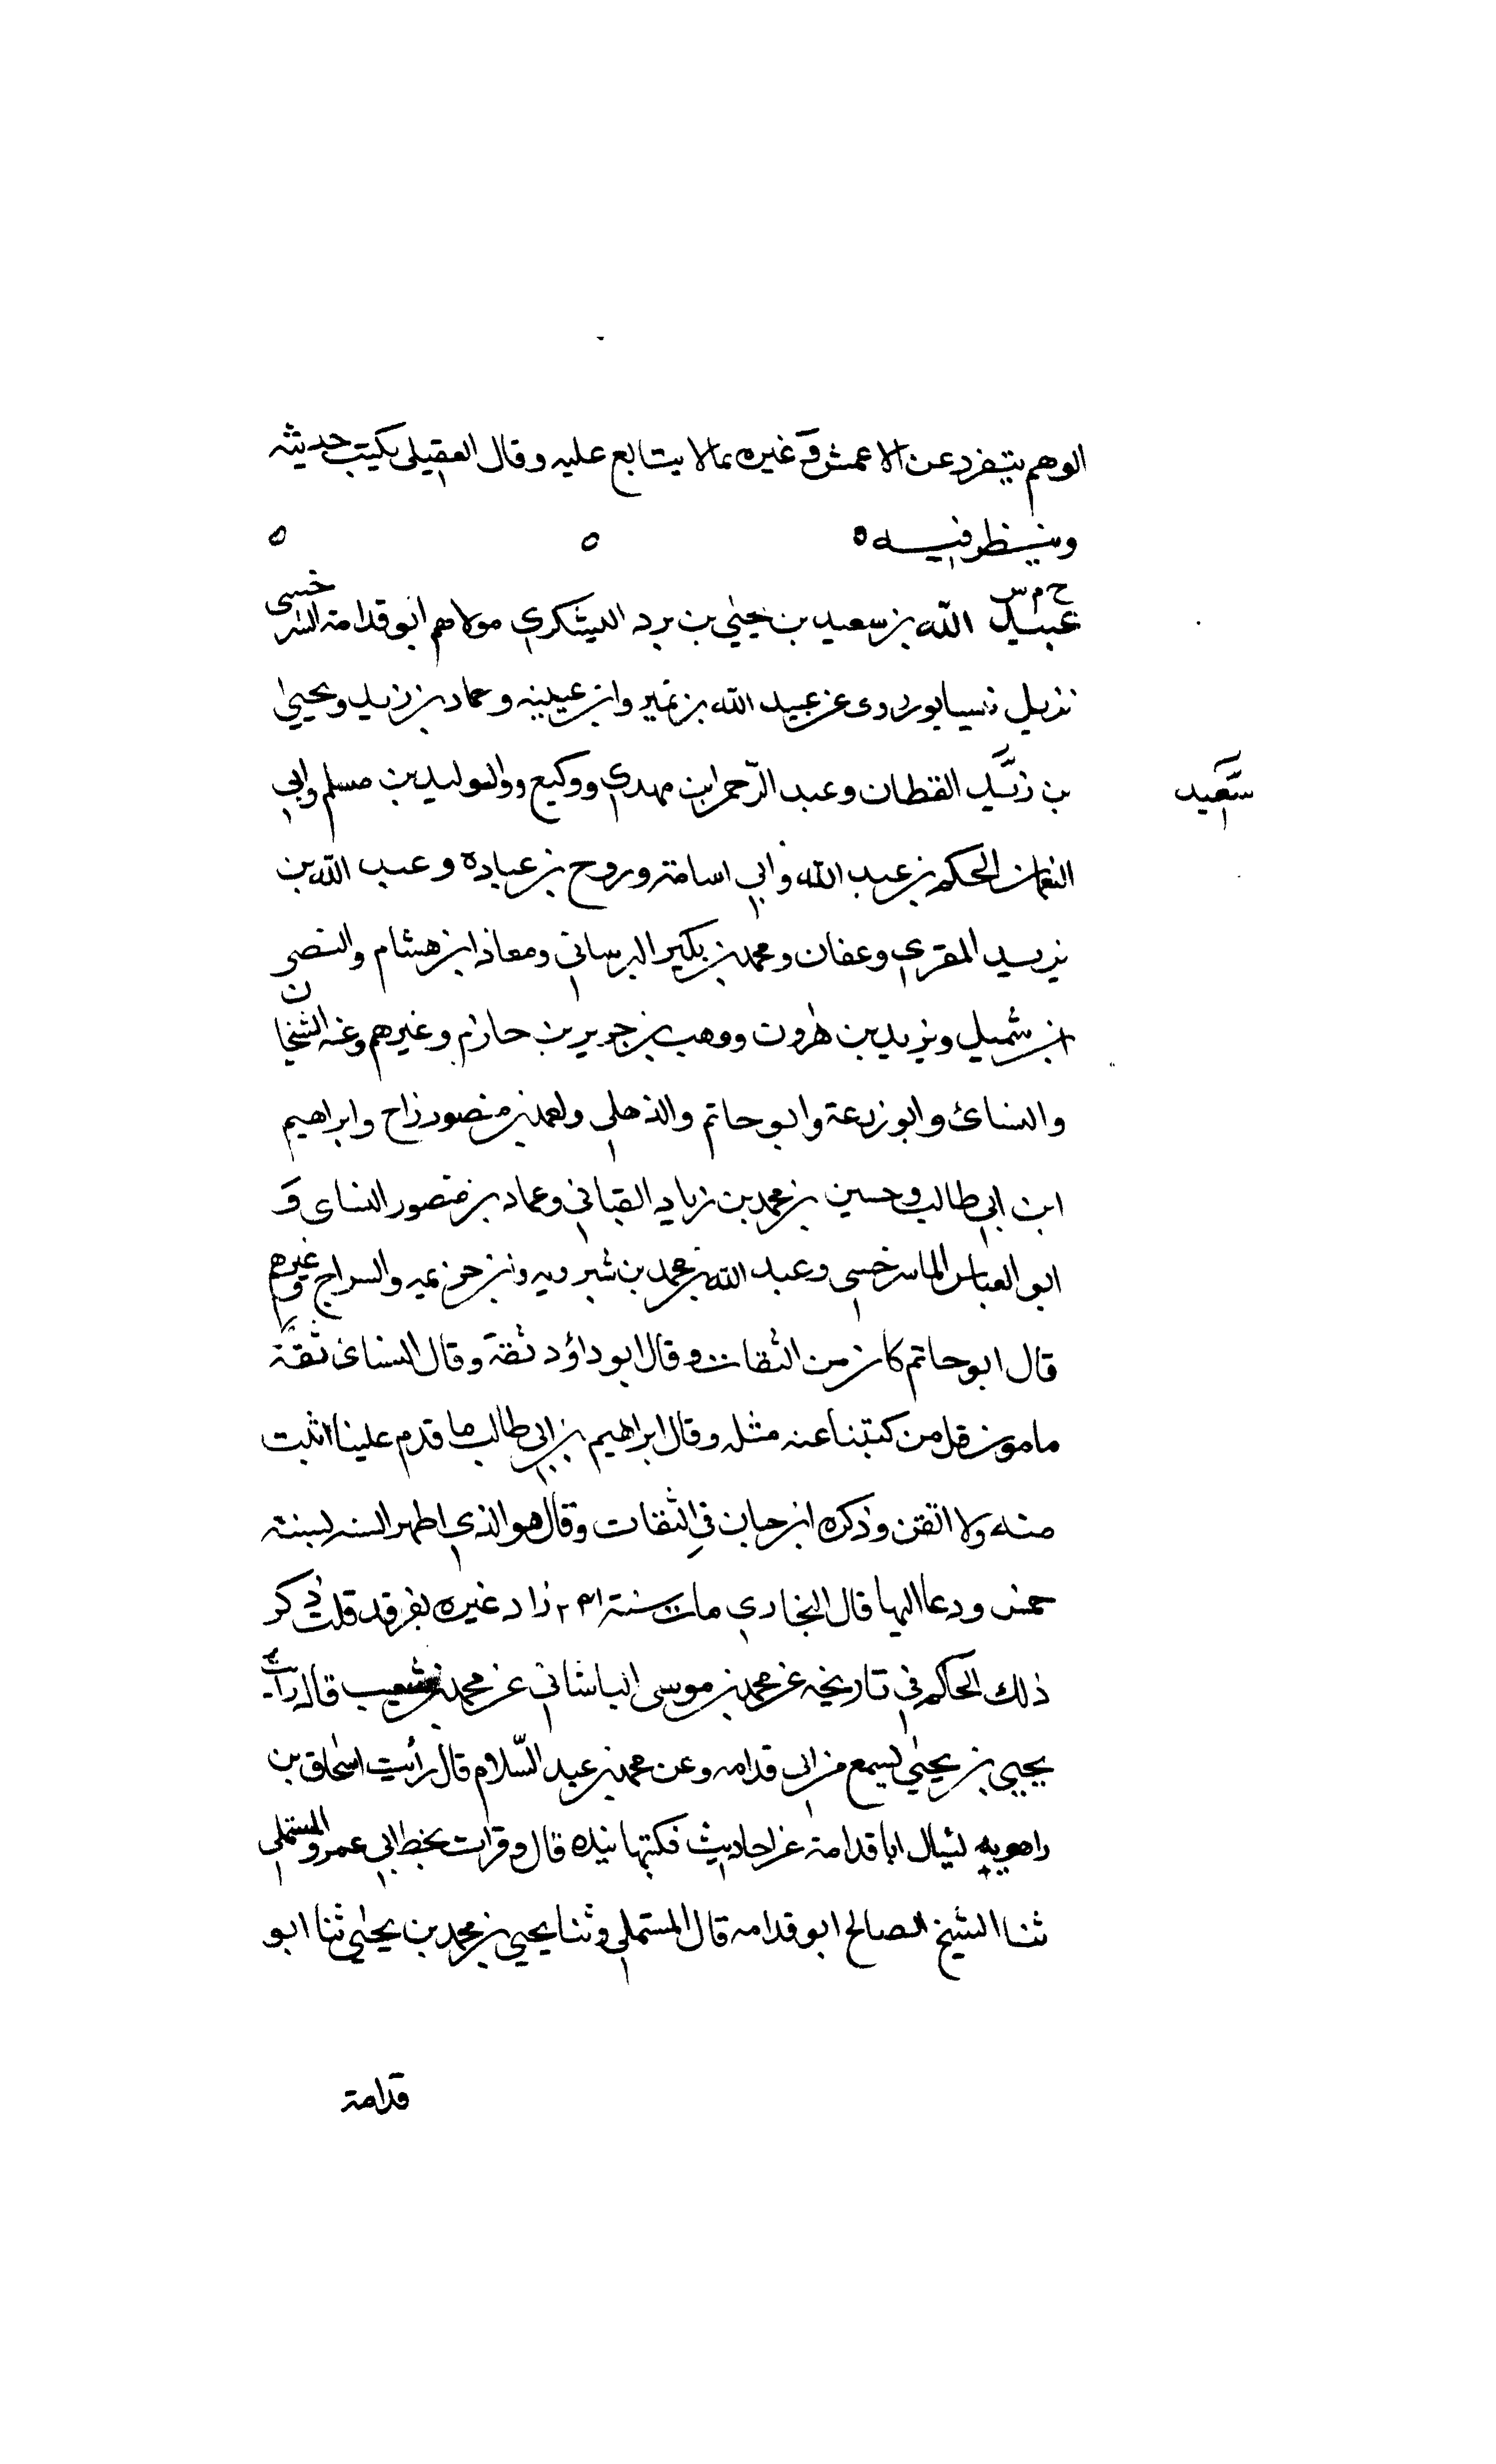 الوهم يتفرد عن الاعمش و غيره بما لا يتابع عليه وقال العقيلي يكتب حديثه
وينظر فيه ه ه ه
خ م س
عبيد الله بن سعيد بن يحيى بن برد اليشكري مولاهم ابو قدامة السرخسي
نزيل نيسابور روى عن عبيد الله بن نمير وابن عيينه وحماد بن زيد ويحيى
بن زيد القطان وعبد الرحمن ابن مهدي ووكيع ووالوليد بن مسلم وابي
سعيد
النعمان الحكم بن عبد الله وابي اسامة وروح بن عباده وعبد الله بن
يزيد المقري وعفان ومحمد بن بكير البرساني ومعاذ ابن هشام والنضر
ابن شميل ويزيد بن هارون ووهب بن جرير بن حازم وغيرهم وعنه الشيخان
والنسائ وابو زرعة وابو حاتم والذهلي واحمد بن منصور زاج وابراهيم
ابن ابي طالب وحسين بن محمد بن زياد القباني وعماد بن منصور النساى و
ابو العباس الماسرخسى وعبد الله بن محمد بن شيرويه وابن خزيمه والسراج وغيرهم
قال ابو حاتم كان من الثقات وقال ابو داؤد ثقة وقال النسائ ثقة
مامون قل من كتبنا عنه مثله وقال ابراهيم بن ابي طالب ما قدم علينا اثبت
منه ولا اتقن وذكره ابن حبان في الثقات وقال هو الذي اظهر السنه لسنة
خمس ودعا اليها قال البخاري مات سنة ٢٤١ زاد غيره بفربقد قلت ذكر
ذلك الحاكم في تاريخه عن محمد بن موسى الباشاني عن محمد بن شعيب قال رأيت
يحيى بن يحيى يسمع من ابي قدامه وعن محمد بن عبد السلام قال رأيت اسحاق بن
راهويه يسال ابا قدامة عن احاديث فكتبها بيده قال وقرات بخط ابي عمرو المستملي
ثنا الشيخ الصالح ابو قدامه قال المستملي وثنا يحيى بن محمد بن يحيى ثنا ابو
قدامة